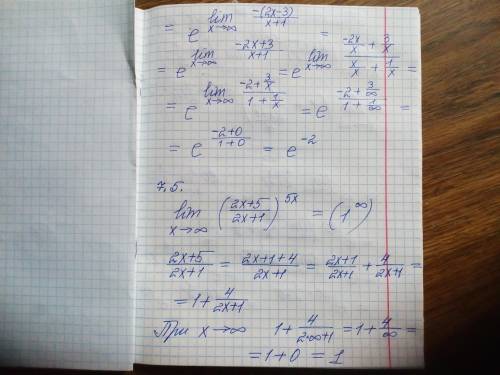 = e^{lim_{x→∞} \frac{-(2x-3)}{x+1}} =
= e^{lim_{x→∞} \frac{-2x+3}{x+1}} = e^{lim_{x→∞} \frac{\frac{-2x}{x}+\frac{3}{x}}{\frac{x}{x}+\frac{1}{x}}} =
= e^{lim_{x→∞} \frac{-2+\frac{3}{x}}{1+\frac{1}{x}}} = e^{\frac{-2+\frac{3}{∞}}{1+\frac{1}{∞}}} =
= e^{\frac{-2+0}{1+0}} = e^{-2}
7.5.
lim_{x→∞} (\frac{2x+5}{2x+1})^{5x} = (1^∞)
\frac{2x+5}{2x+1} = \frac{2x+1+4}{2x+1} = \frac{2x+1}{2x+1} + \frac{4}{2x+1} =
= 1 + \frac{4}{2x+1}
При x→∞ 1 + \frac{4}{2·∞+1} = 1 + \frac{4}{∞} =
= 1+0 = 1